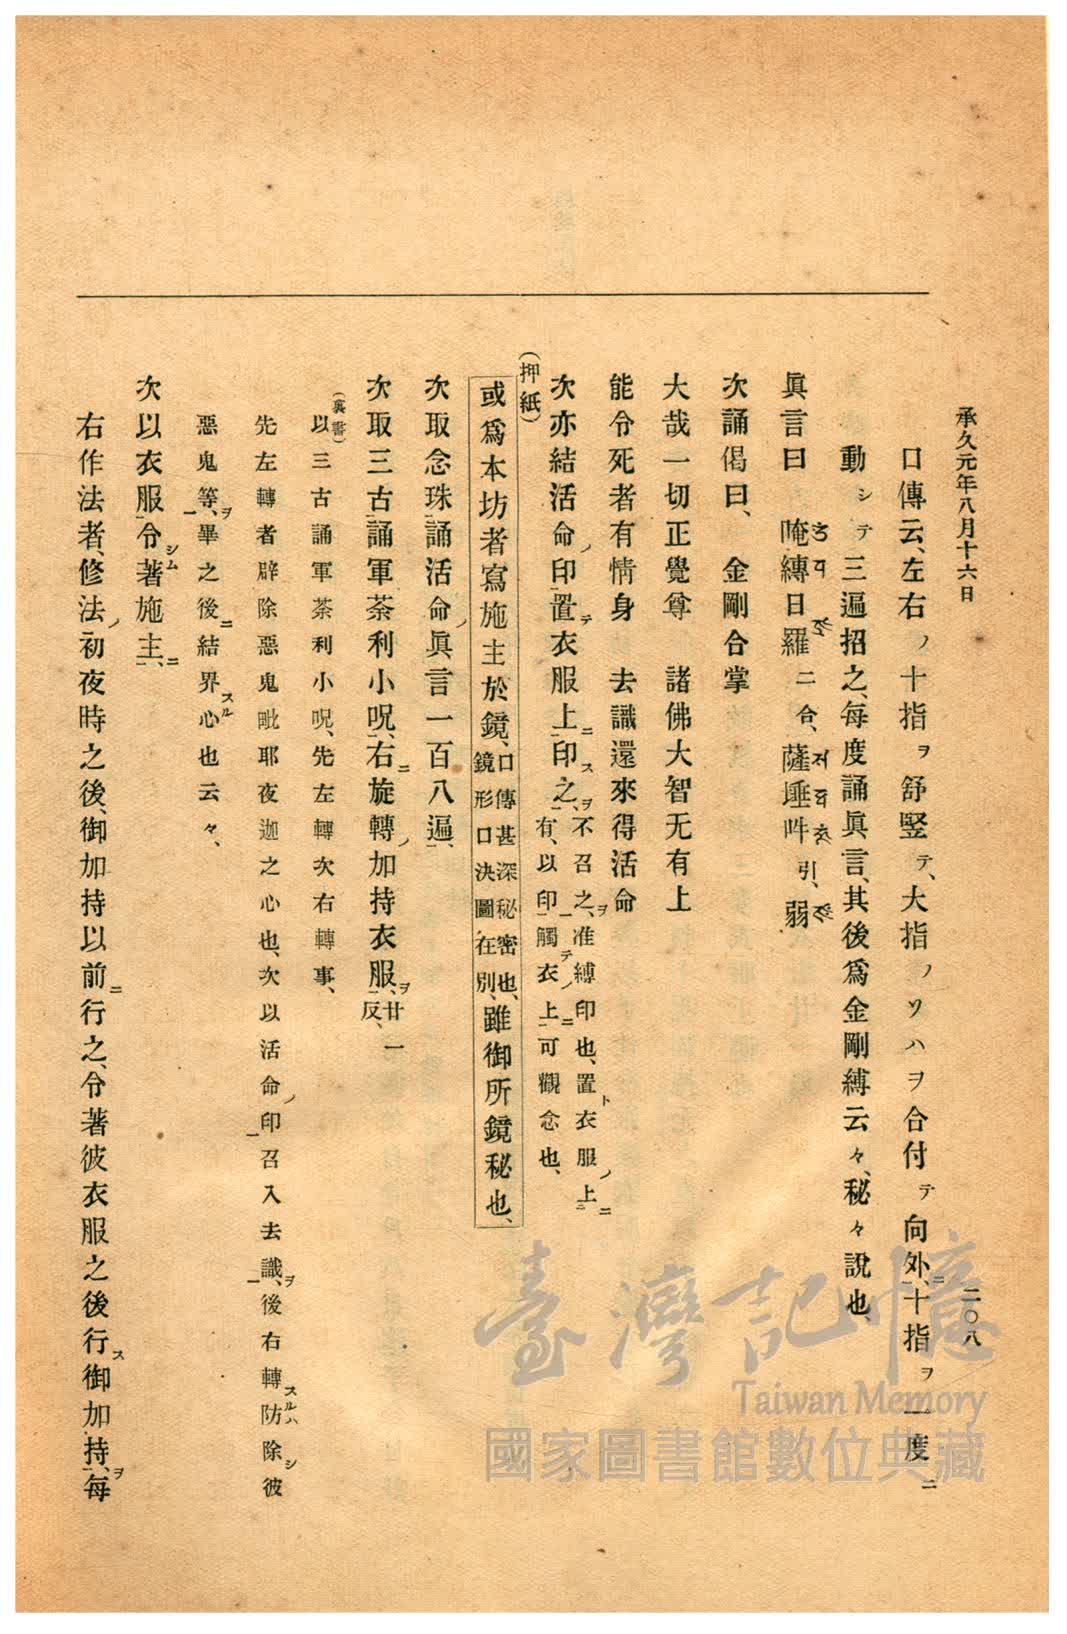 承久元年八月十六日
二〇八
口傳云、左右ノ十指ヲ舒竪テ、大指ノソハヲ合付テ向外ニ、十指ヲ一度ニ
動シテ三遍招之、每度誦眞言、其後爲金剛縛云々、秘々說也、
眞言曰 唵縛日羅二合、薩埵吽引、弱
次誦偈曰、 金剛合掌
大哉一切正覺尊 諸佛大智无有上
能令死者有情身 去識還來得活命
次亦結活命ノ印置テ衣服上ニ印ス之ヲ、不召之ヲ、准縛印也、置ト衣服ノ上ニ
有、以印觸テ衣ノ上ニ可觀念也、
(押紙)
或爲本坊者寫施主於鏡、口傳甚深秘密也、鏡形口決圖在別、雖御所鏡秘也、
次取念珠誦活命ノ眞言一百八遍、
次取三古誦軍荼利小呪、右ニ旋轉ノ加持衣服ヲ、廿一反、
(裏書)
以三古誦軍荼利小呪、先左轉次右轉事、
先左轉者辟除惡鬼毗耶夜迦之心也、次以活命ノ印召入去識ヲ、後右轉スルハ防除シ彼
惡鬼等ヲ、畢之後ニ結界スル心也云々、
次以衣服令シム著施主ニ、
右作法者、修法ノ初夜時之後、御加持以前ニ行之、令著彼衣服之後行ス御加持ヲ、每
臺灣記憶
Taiwan Memory
國家圖書館數位典藏